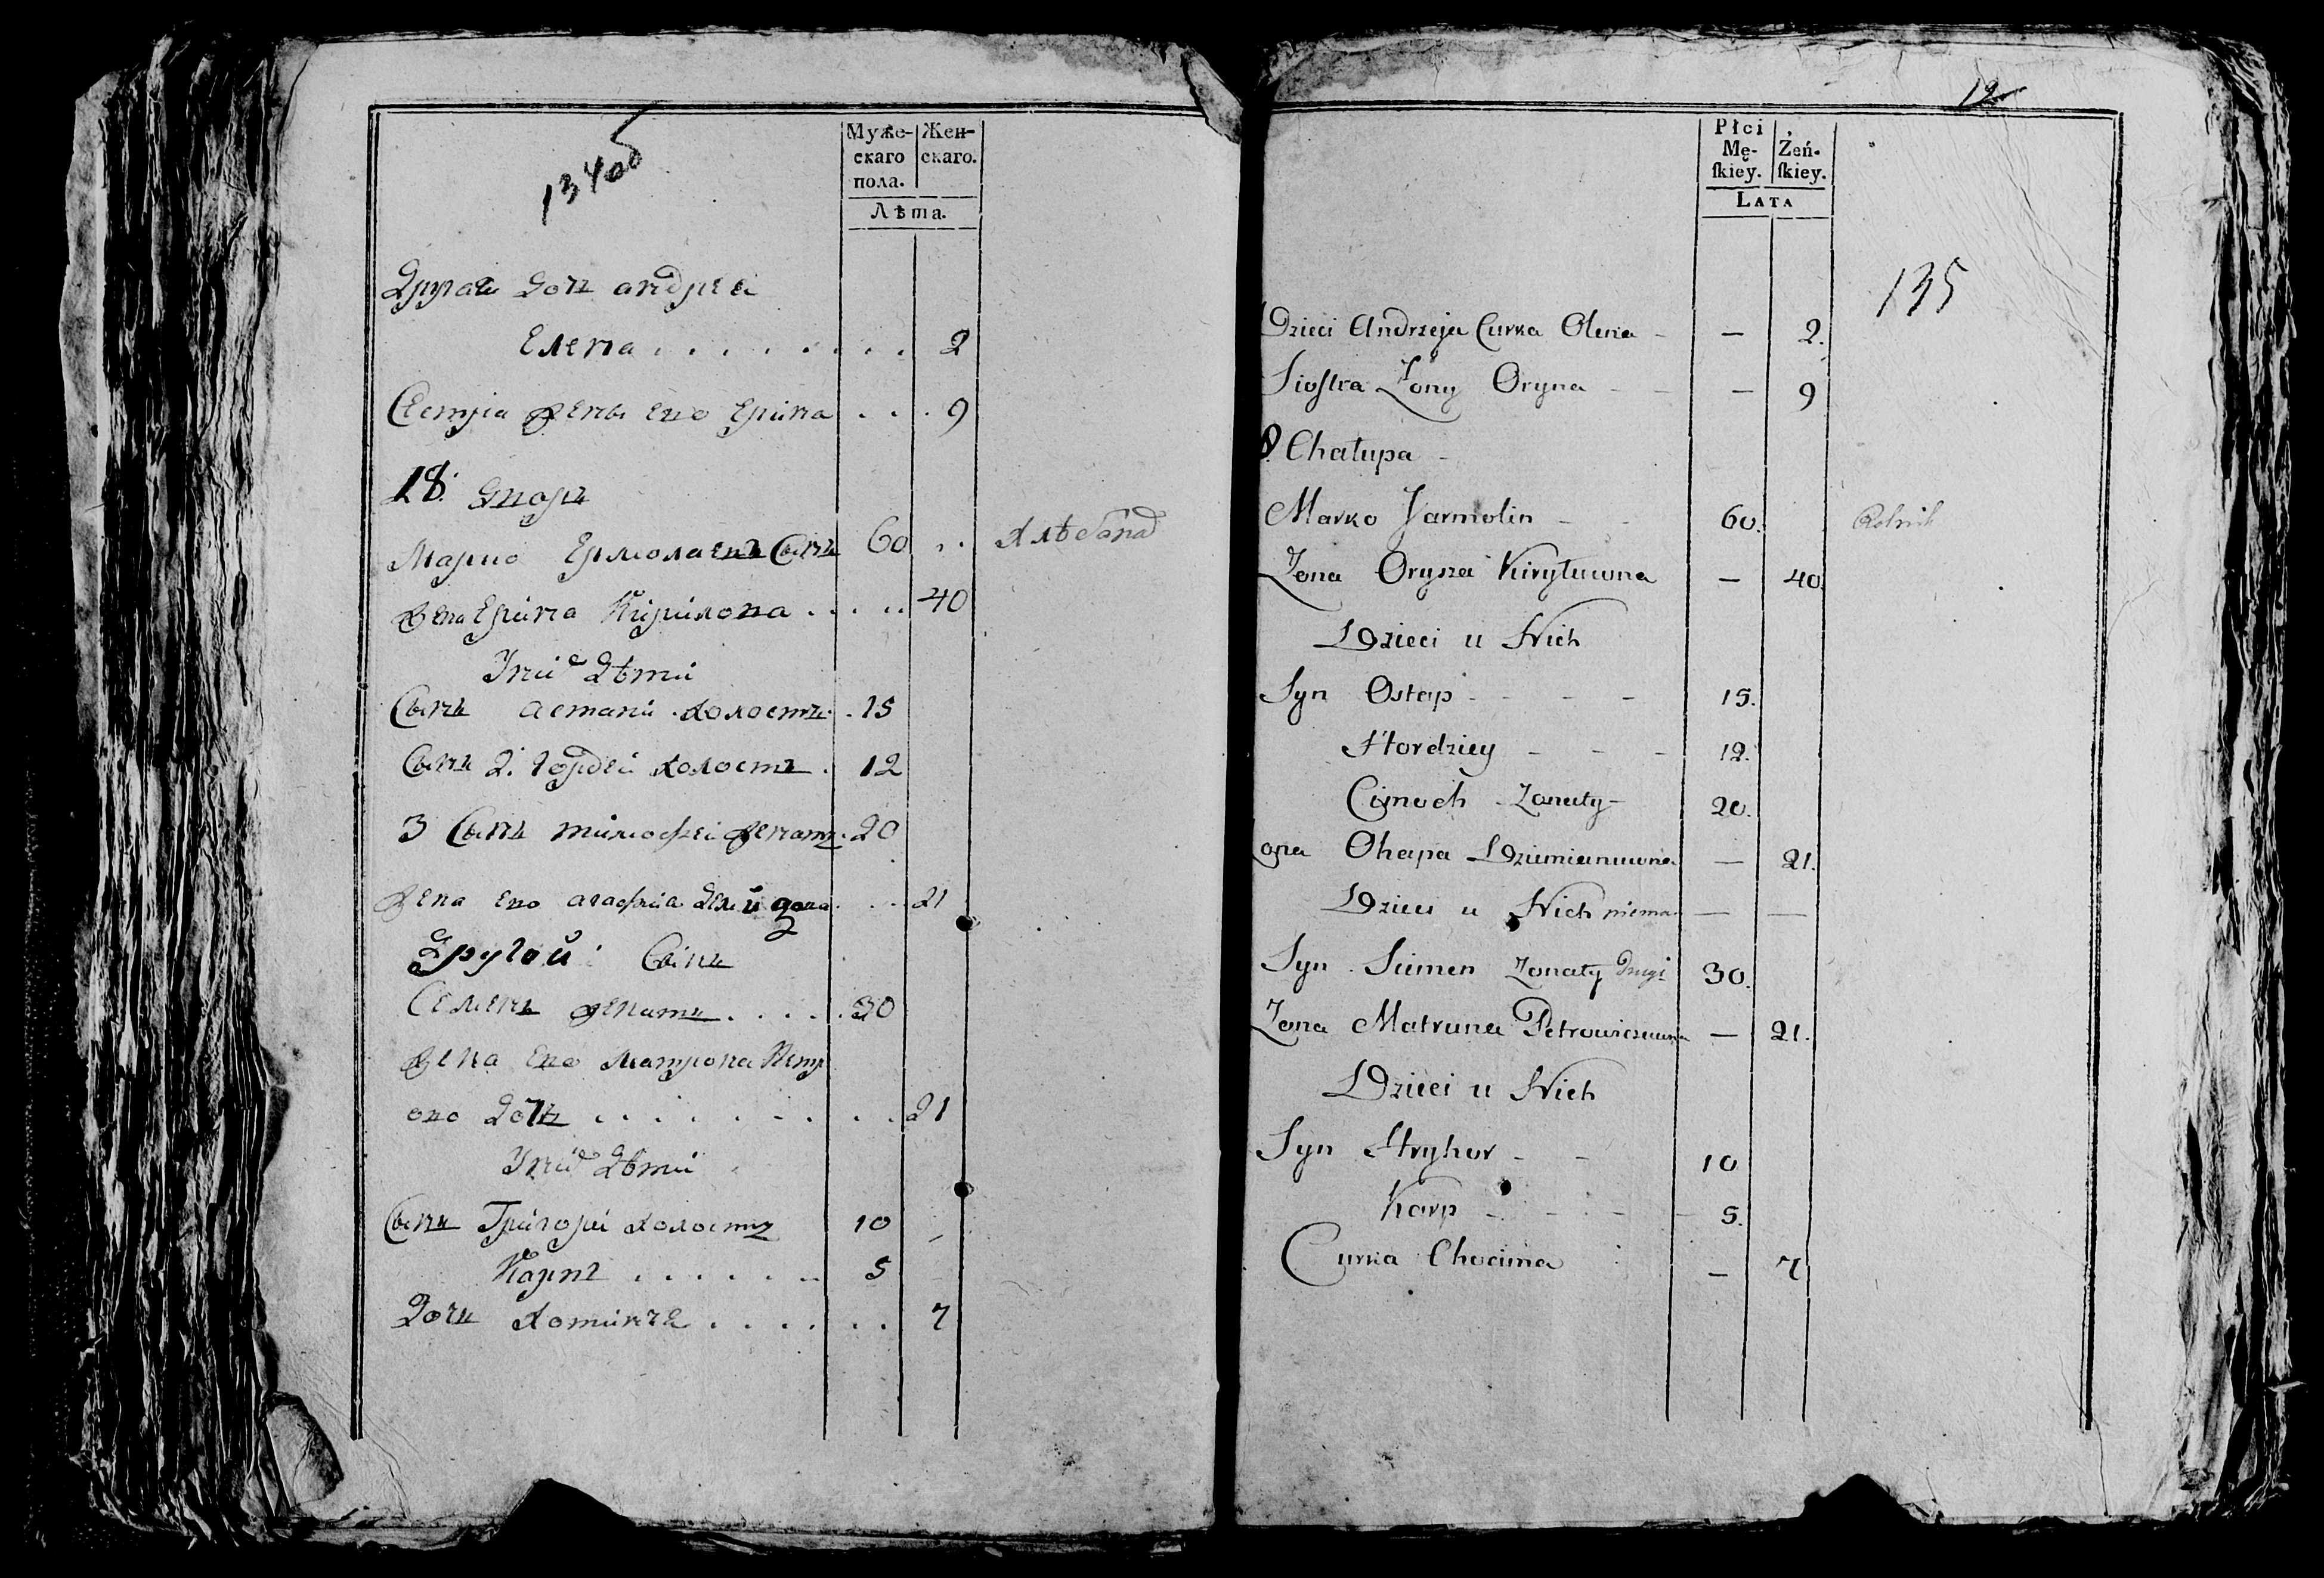 134об
Муже-
скаго
пола.
Жен-
скаго.
Лѣта.
Другая дочь андрея
Елена . . . . . . . . 2
Сестра жены ево Ерина . . . 9
18. Дворъ
Марко Ермолаевъ Сынъ 60 . . Хлѣбопа
жена Ерина Кирилова . . . . 40
У нихъ дѣти
Сынъ астапи холостъ . 15
Сынъ 2. гордеи холостъ . 12
3 Сынъ тимофеи женатъ . 20
жена ево агафия . . . 21
Другой Сынъ
Семенъ женатъ . . . . . 30
жена ево матрона Петр
ово дочь . . . . . . . . 21
У нихъ дѣти
Сынъ Григори холостъ 10
Карпъ . . . . . . 5
Дочь хотиня . . . . . . 7
12
Płci
Mę-
ſkiey.
Żeń-
ſkiey.
LATA
135
Dzieci Andrzeja Curka Olena - — 2.
Siostra Zony Oryna - - — 9
8. Chałupa -
Marko Jarmolin - - 60. Rolnik
Zona Orysza Kiryłuwna — 40.
Dzieci u Nich
Syn Ostap - - - - 15.
Hordziey - - - 12.
Cimoch - Zonaty - 20.
ona Ohapa Dziemianuwna — 21.
Dzieci u Nich niema — —
Syn Siemen Zonaty Drugi 30.
Zona Matruna Petrowiczuwna — 21.
Dzieci u Nich
Syn Hryhor - - 10
Karp - - - - 5.
Curka Chocima — 7